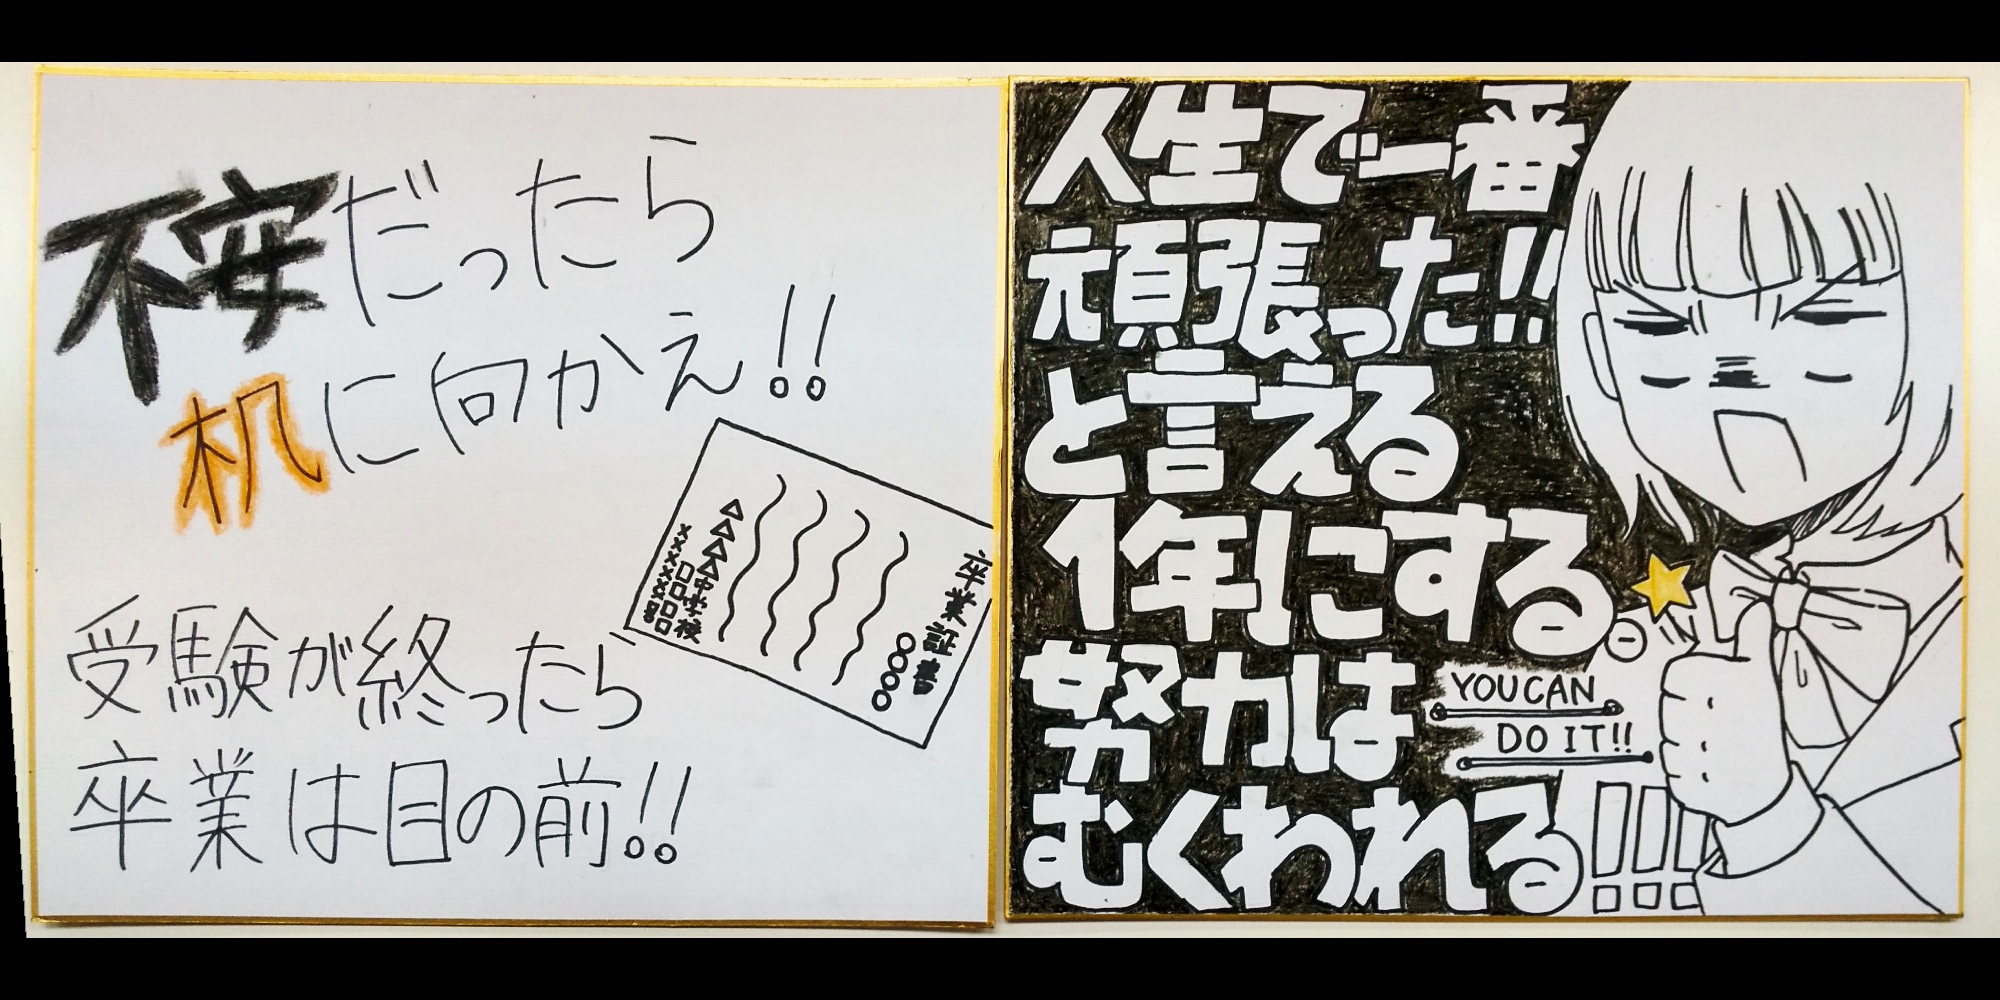 不安だったら
机に向かえ!!
卒業証書
○○○○
△△△△中学校
××××□□□□
受験が終ったら
卒業は目の前!!
人生で一番
頑張った!!
と言える
1年にする。
努力は
YOU CAN
DO IT!!
むくわれる!!!